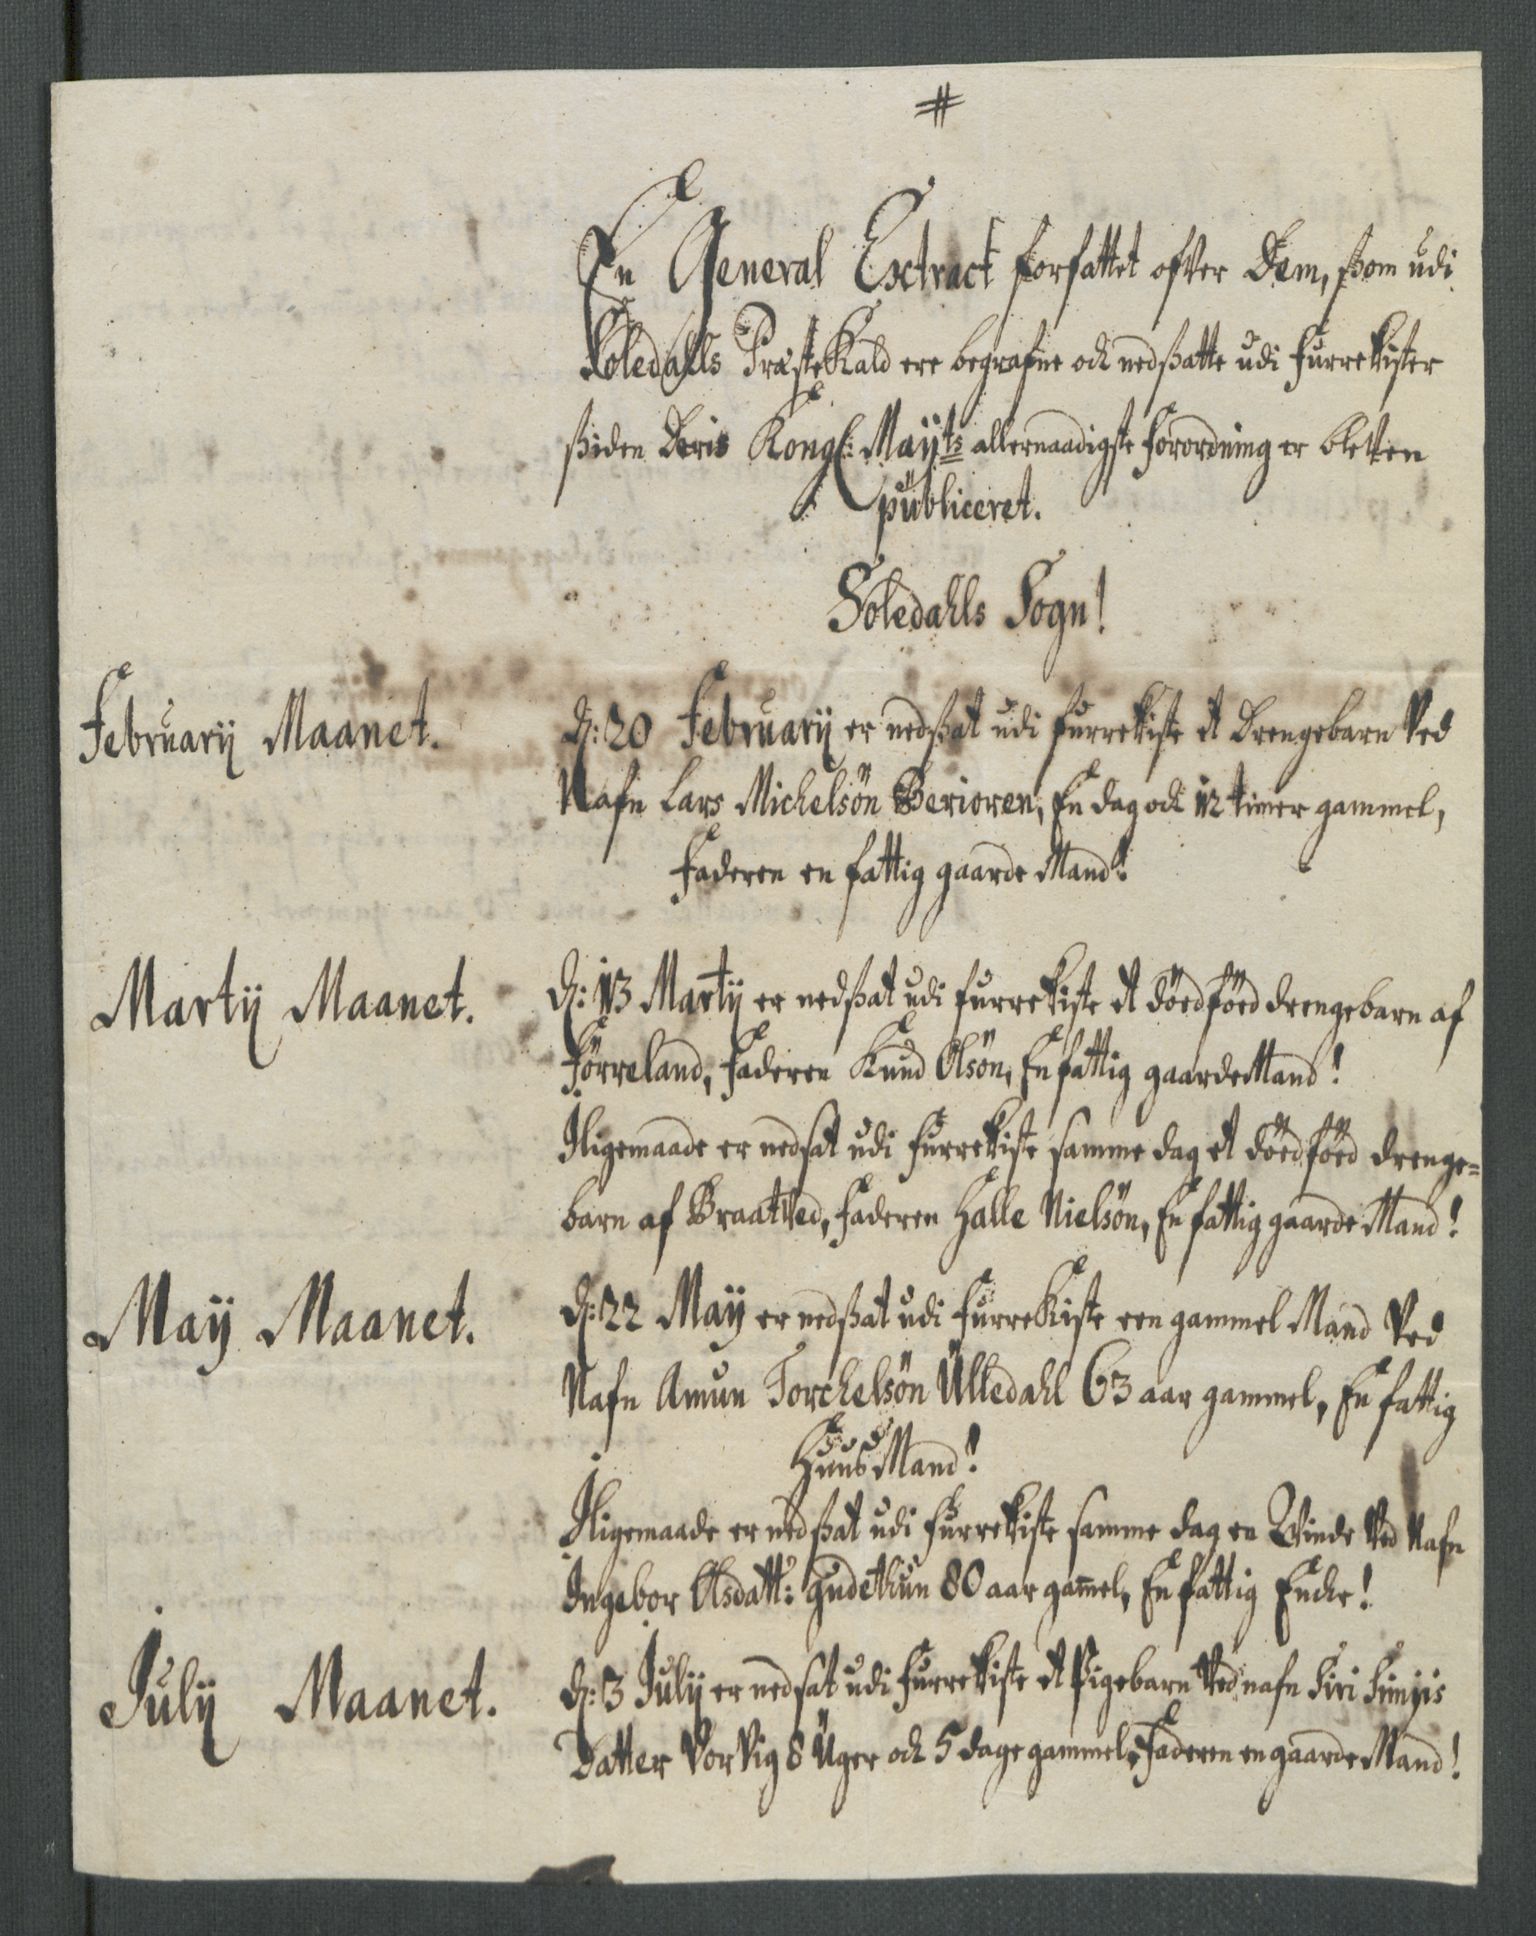 #
En General Extract forfattet ofver Dem, som udi
Soledahls PræsteKald ere begrafne och nedsatte udi furrekister
siden Deris Kongl: Maÿts allernaadigste forordning er bleven
publiceret.
Soledahls Sogn!
Februarÿ Maanet.
d: 20 Februarÿ er nedsat udi furrekiste et Drengebarn ved
Nafn Lars Michelsön Berioren, En dag och 12 timer gammel,
Faderen en fattig gaarde Mand!
Martÿ Maanet.
d: 13 Martÿ er nedsat udi furrekiste et dödföed drengebarn af
Förreland, Faderen Knud Olsön, En fattig gaardeMand!
Iligemaade er nedsat udi furrekiste samme dag et dödföed drenge=
barn af Braatved, Faderen Halle Nielsön, En fattig gaarde Mand!
Maÿ Maanet.
d: 22 Maÿ er nedsat udi furreKiste een gammel Mand ved
Nafn Amun Torchelsön Ülledahl 63 aar gammel, En fattig
HuusMand!
Iligemaade er nedsat udi furrekiste samme dag en Qvinde ved Nafn
Ingebor Olsdatt: Gudethun 80 aar gamel, En fattig Encke!
Julÿ Maanet.
d: 3 Julÿ er nedsat udi furrekiste et Pigebarn ved nafn Siri
Datter Vorvig 8 Uger och 5 dage gammel, Faderen en gaarde Mand!